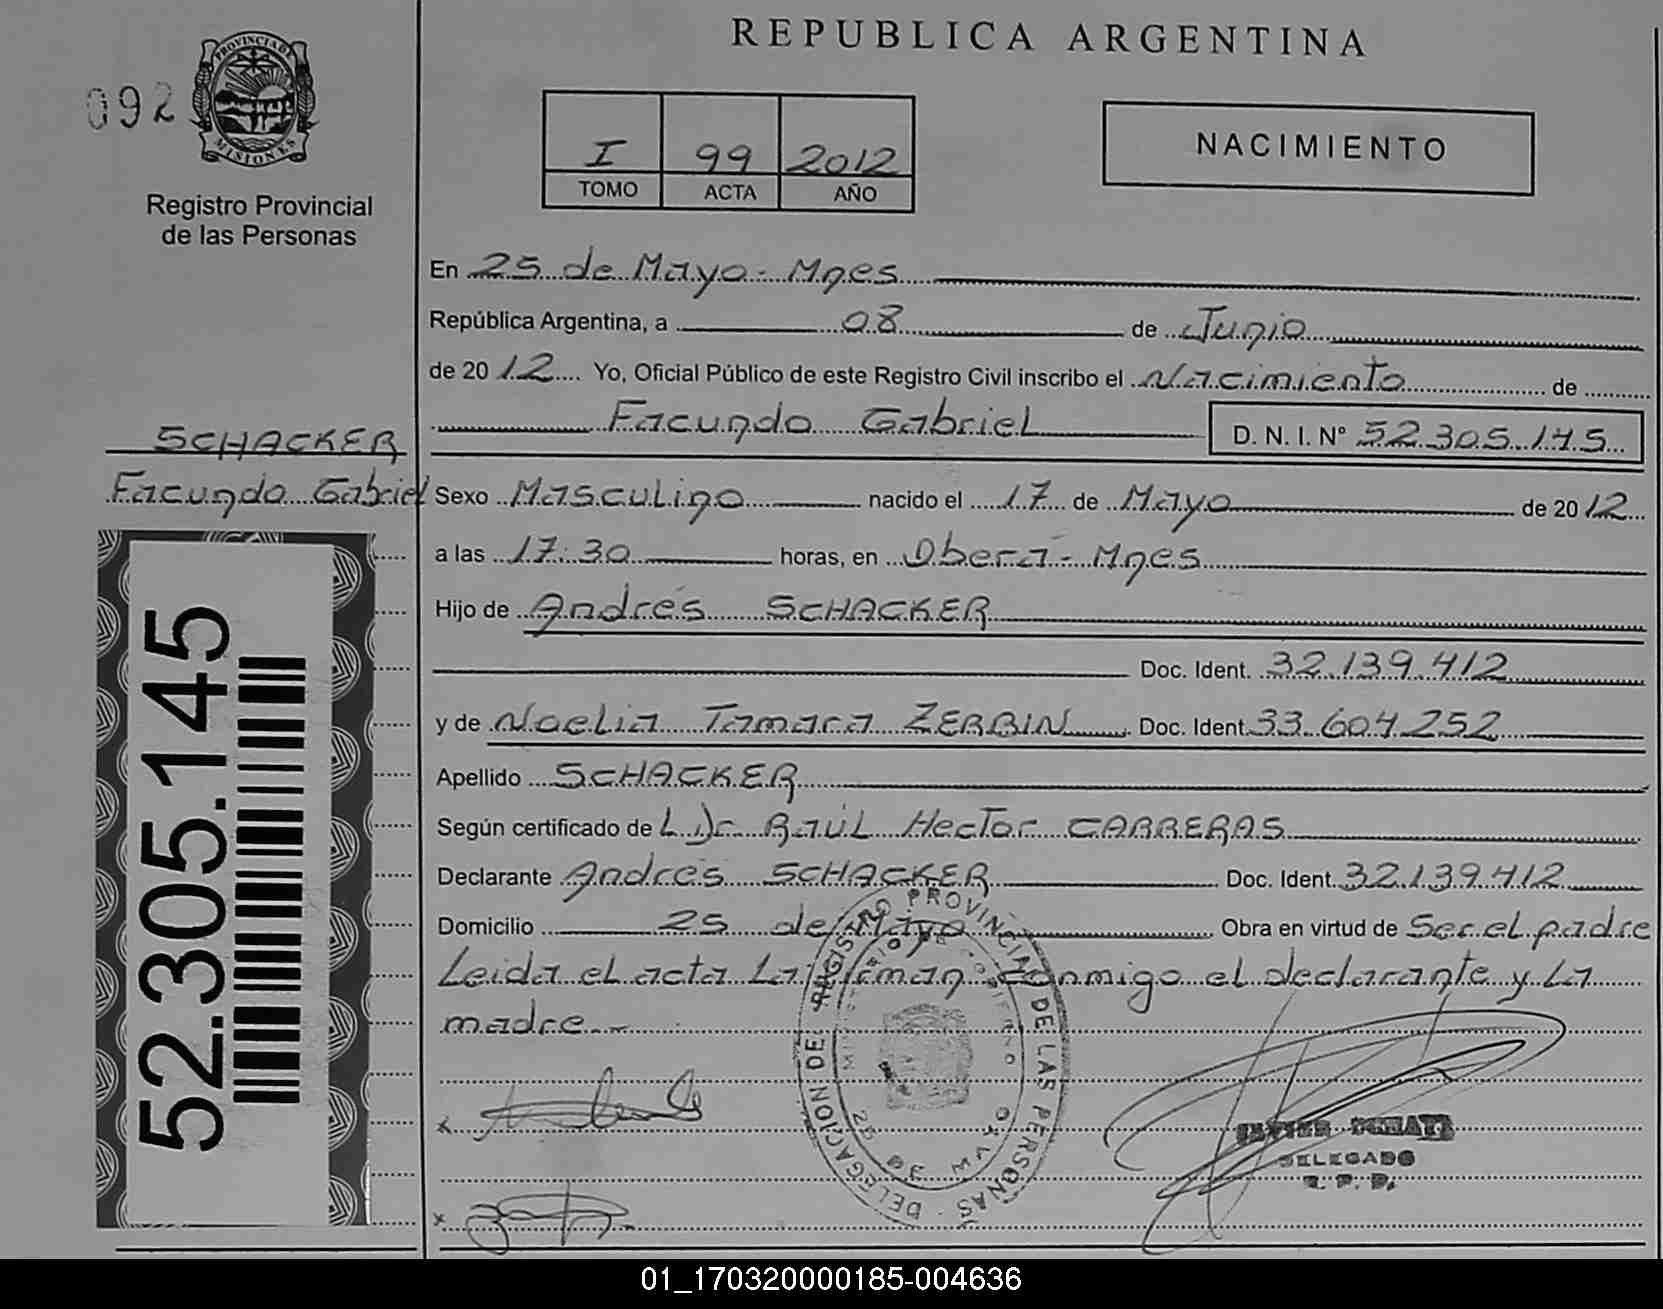 REPUBLICA ARGENTINA
092
PROVINCIA DE
MISIONES
Registro Provincial
de las Personas
I 99 2012
TOMO ACTA AÑO
NACIMIENTO
En 25 de Mayo - Mnes
República Argentina, a 08 de Junio
de 2012 Yo, Oficial Público de este Registro Civil inscribo el Nacimiento de
Facundo Gabriel D. N. I. Nº 52.305.145
SCHACKER
Facundo Gabriel
Sexo Masculino nacido el 17 de Mayo de 2012
a las 17:30 horas, en Oberá - Mnes
Hijo de Andrés SCHACKER
Doc. Ident. 32.139.412
y de Noelia Tamara ZERBIN Doc. Ident. 33.604.252
Apellido SCHACKER
Según certificado de Dr Raúl Hector CARRERAS
Declarante Andrés SCHACKER Doc. Ident. 32.139.412
Domicilio 25 de Mayo Obra en virtud de Ser el padre
Leida el acta La firman conmigo el declarante y La
madre.-
52.305.145
DELEGACION DEL REGISTRO PROVINCIAL DE LAS PERSONAS
MINISTERIO DE GOBIERNO
25 DE MAYO
DELEGADO
R. P. P.
01_170320000185-004636